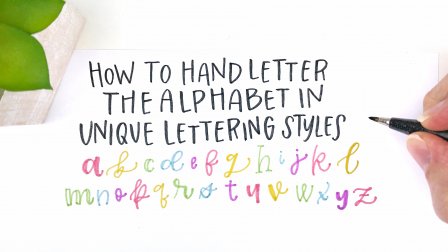 HOW TO HAND LETTER
THE ALPHABET IN
UNIQUE LETTERING STYLES
a b c d e f g h i j k l
m n o p q r s t u v w x y z